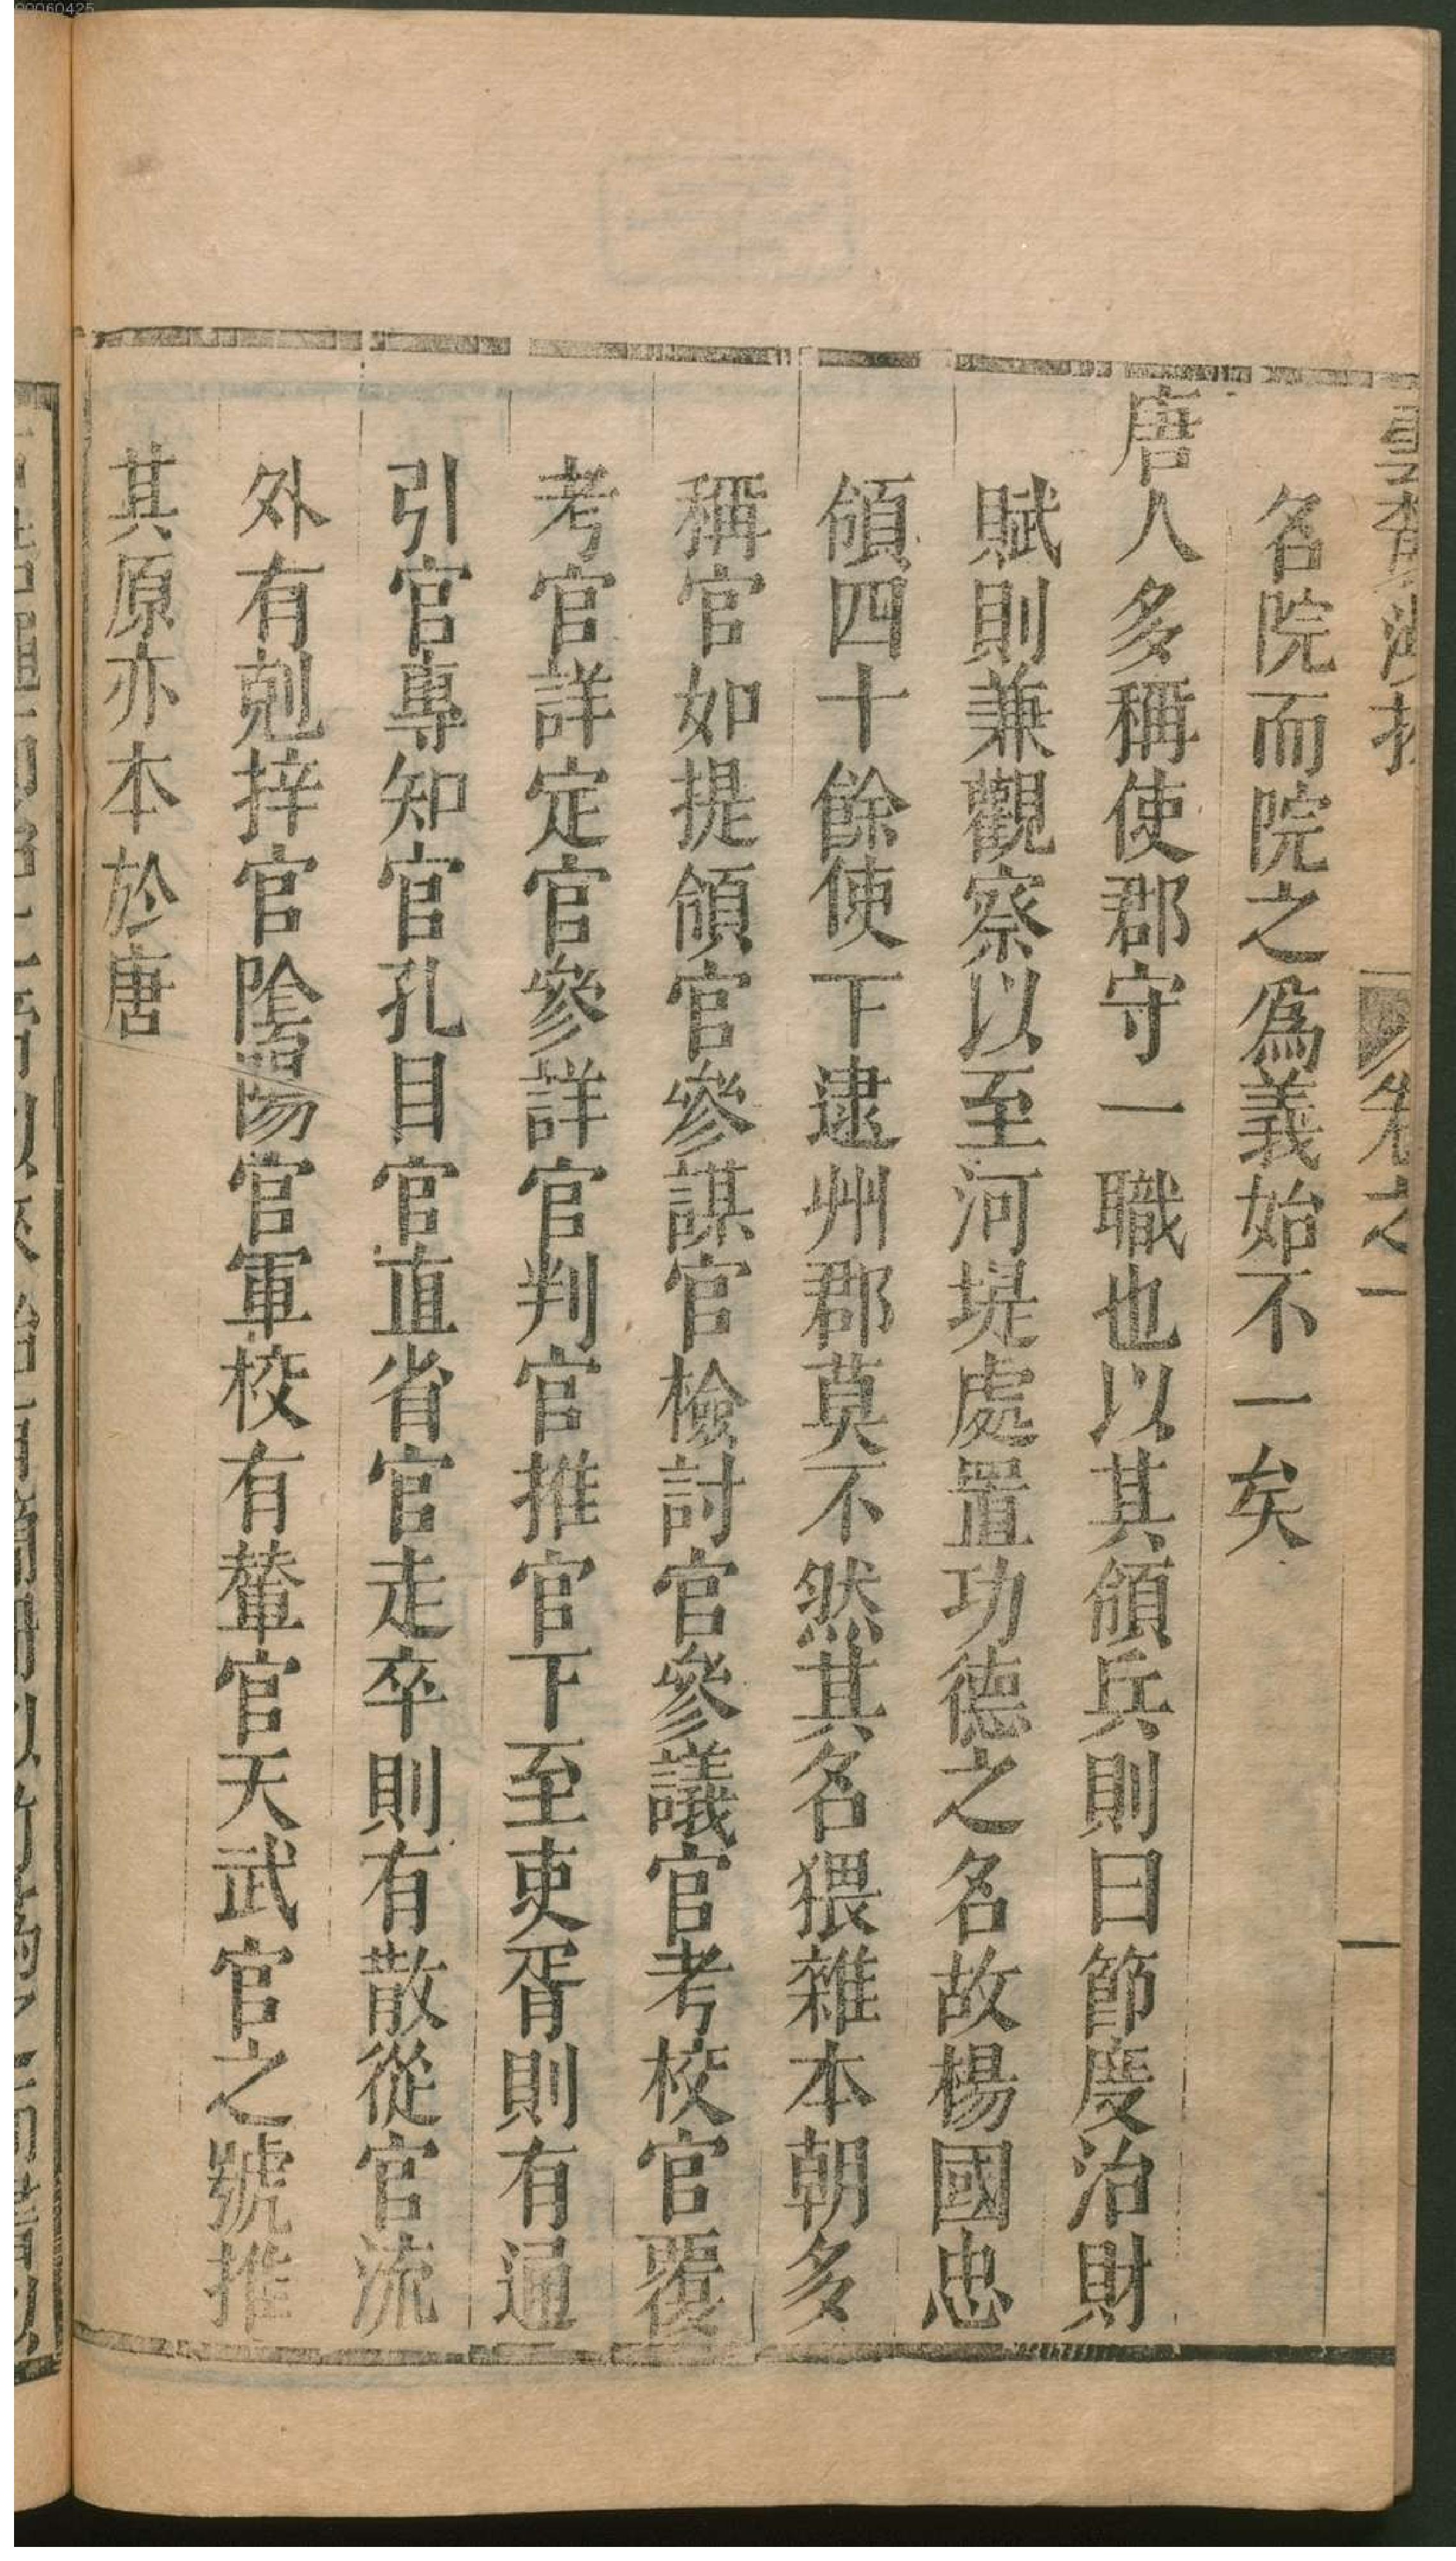 名院而院之為義始不一矣
唐人多稱使郡守一職也以其領兵則曰節度治財
賦則兼觀察以至河堤處置功德之名故楊國忠
領四十餘使下逮州郡莫不然其名猥雜本朝多
稱官如提領官參謀官檢討官參議官考校官覆
考官詳定官參詳官判官推官下至吏胥則有通
引官專知官孔目官直省官走卒則有散從官流
外有剋擇官陰陽官軍校有輦官天武官之號推
其原亦本於唐